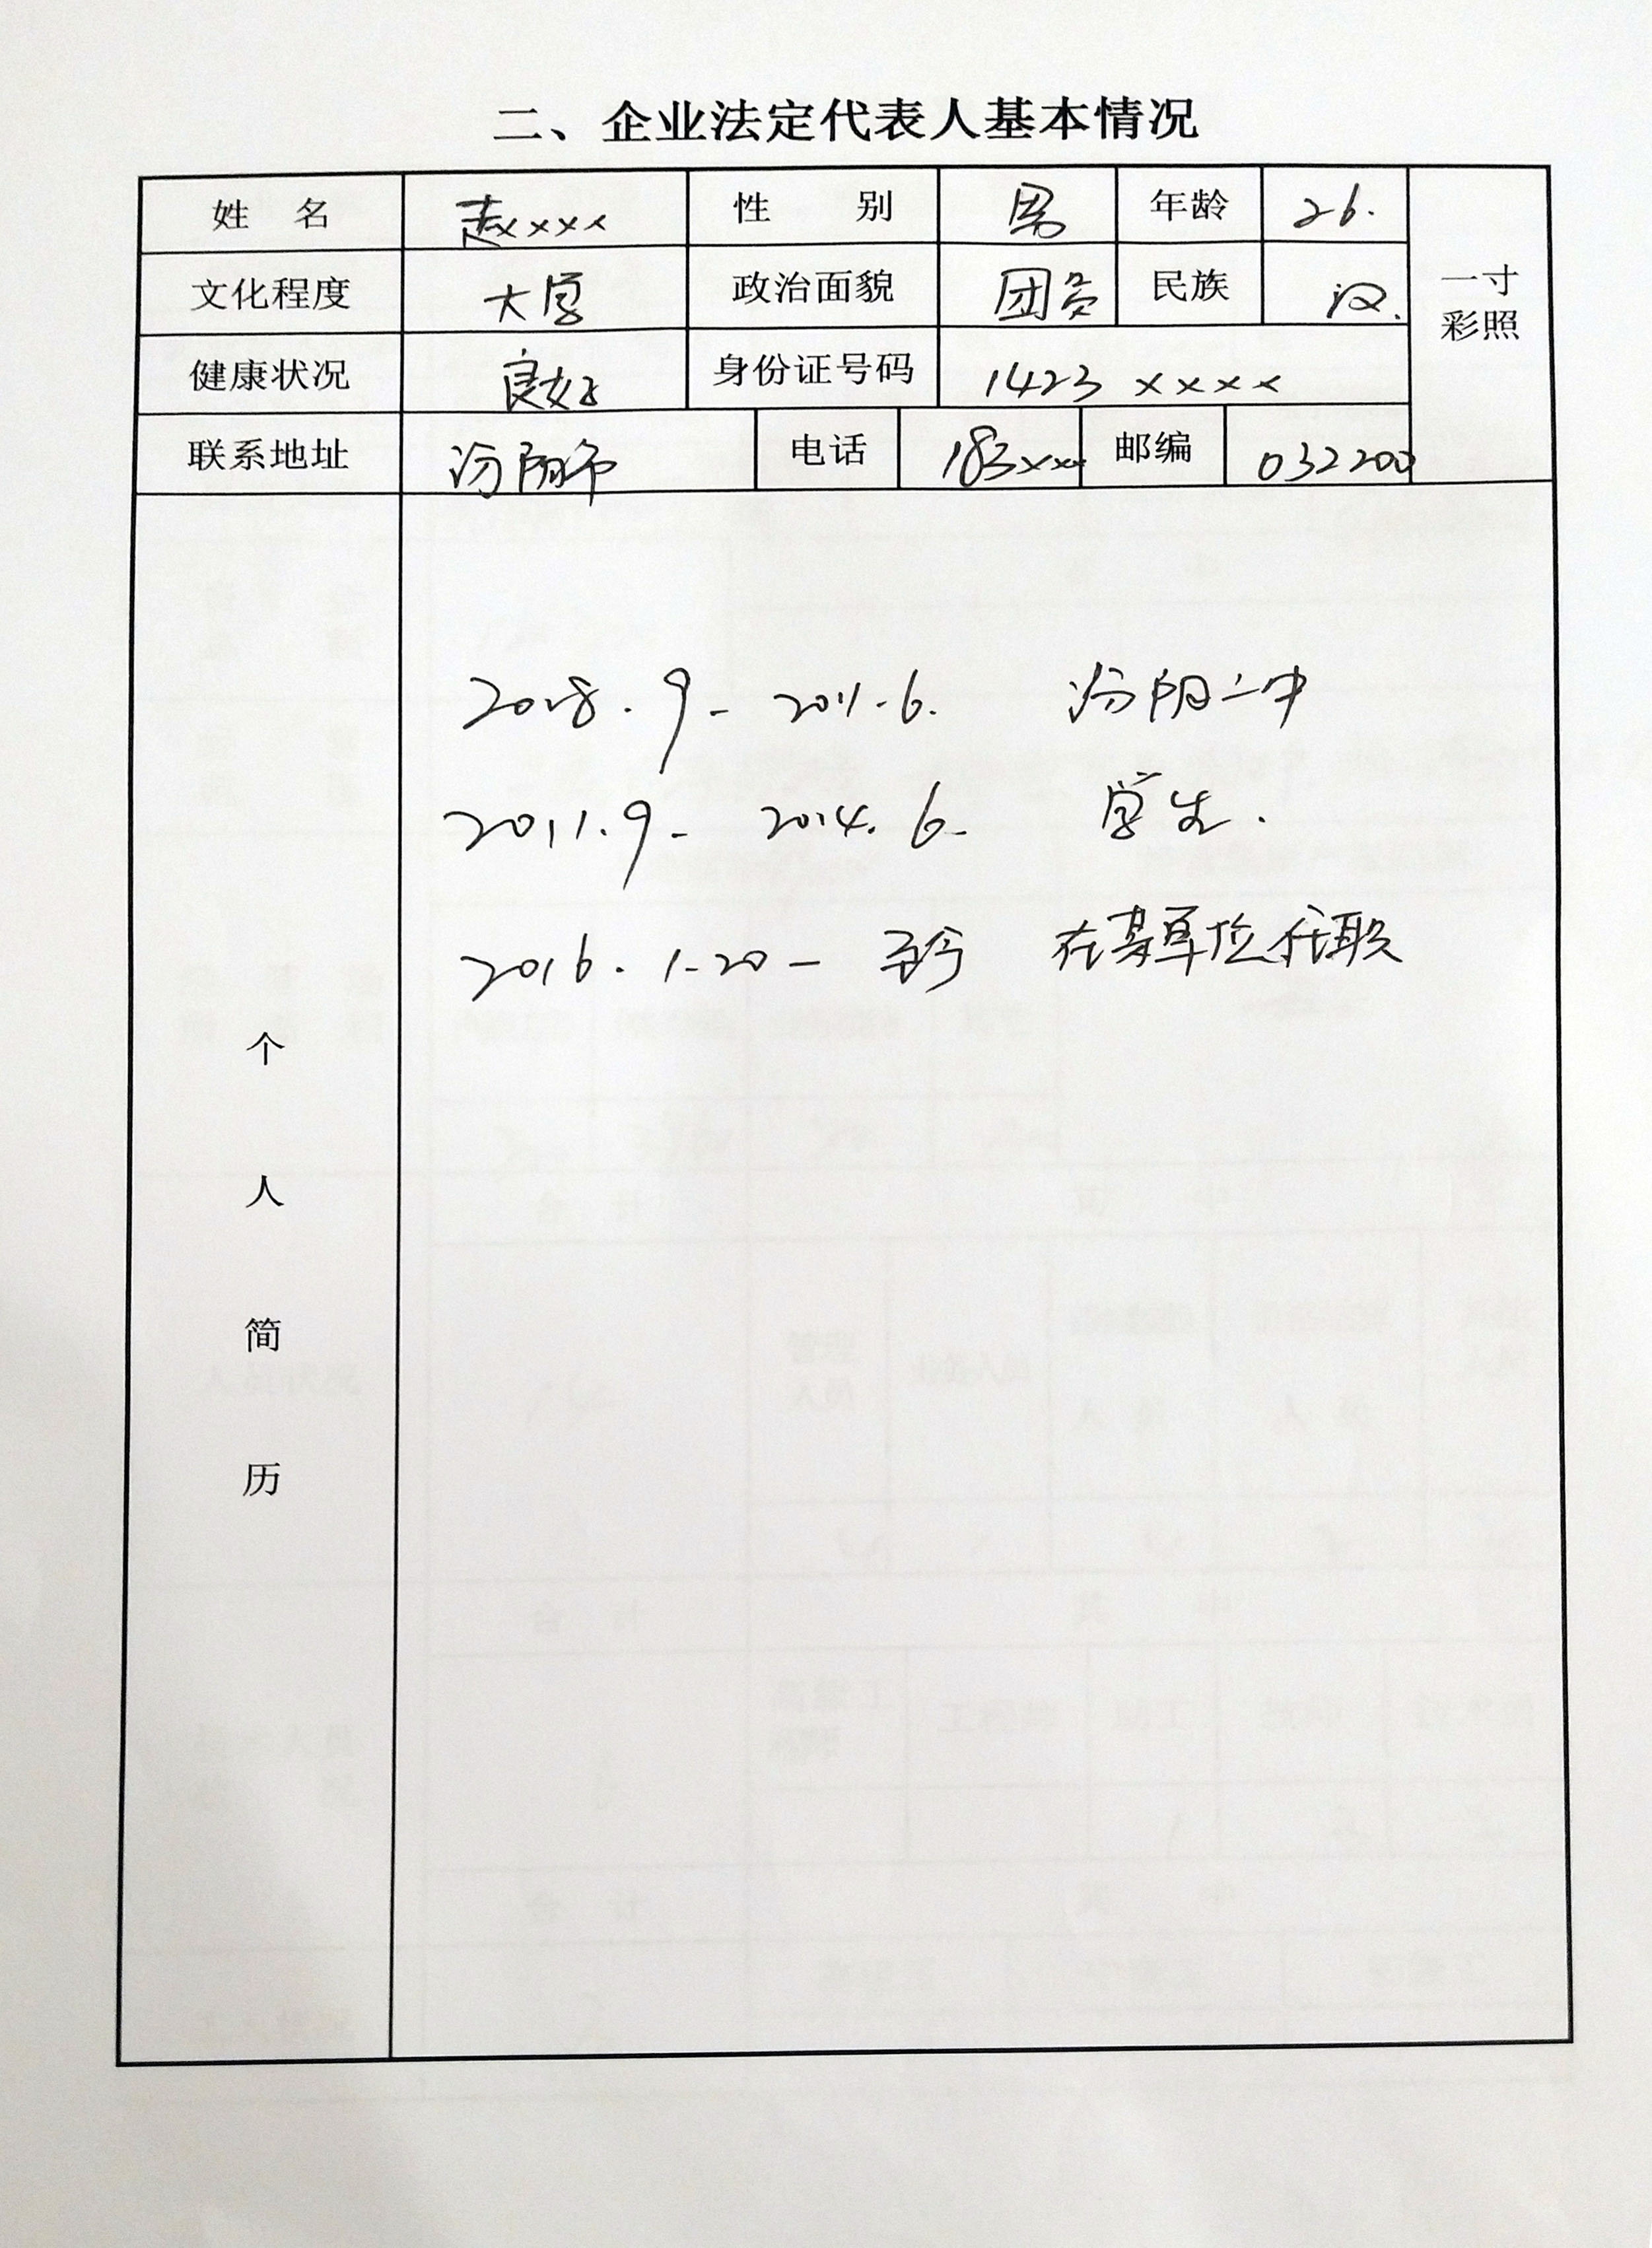 二、企业法定代表人基本情况
姓 名 赵xxxx 性 别 男 年龄 26.
一寸
彩照
文化程度 大学 政治面貌 团员 民族 汉.
健康状况 良好 身份证号码 1423 xxxx
联系地址 汾阳市 电话 183xxx 邮编 032200
个人简历
2008.9- 2011.6. 汾阳二中
2011.9- 2014.6- 学生.
2016.1-20- 至今 在某单位任职